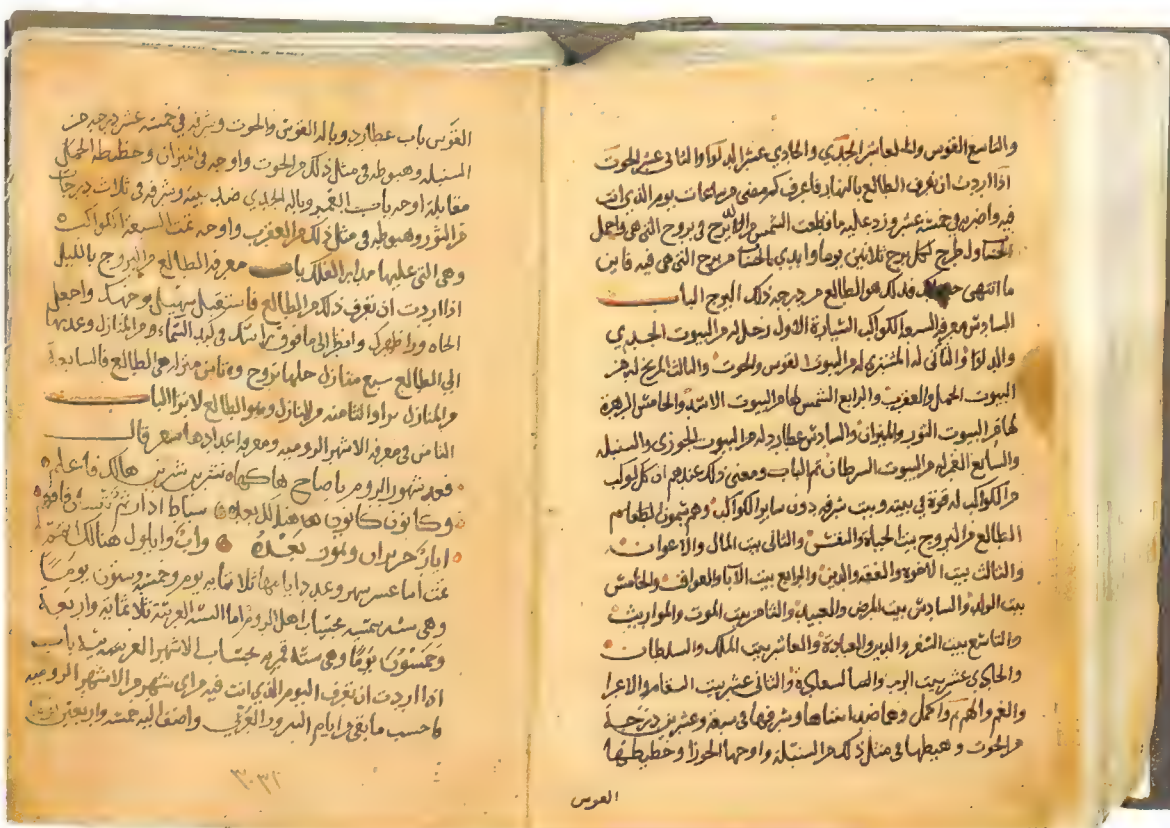 والتاسع القوس والعاشر الجدي والحادي عشر الدلو والثاني عشر الحوت
اذا اردت ان تعرف الطالع بالنهار فاعرف كم مضى من ساعات يومر الذي انت
فيه واضربه في خمسة عشر وزد عليه ما قطعت الشمس من البرج التي هي واجمل
واطرح لكل برج ثلاثين يوما وابدي بالحساب من برج التي هي فيه فاين
ما انتهى فذلك هو الطالع من درجة ذلك البرج الباب
السادس معرفة السبعة الكواكب السيارة الاول زحل له من البيوت الجدي
والدلو والثاني له المشتري له من البيوت القوس والحوت والثالث المريخ له من
البيوت الحمل والعقرب والرابع الشمس لها من البيوت الاسد والخامس الزهرة
لها من البيوت الثور والميزان والسادس عطارد له من البيوت الجوزي والسنبله
والسابع القمر له من البيوت السرطان تم الباب ومعنى ذلك عندهم ان كل كوكب
من الكواكب له قوة في بيته وبيت شرفه دون ساير الكواكب وهم يسمون
الطالع من البروج بيت الحياة والنفس والثاني بيت المال والاعوان
والثالث بيت الاخوة والفقه والدين والرابع بيت الآباء والعواقب والخامس
بيت الولد والسادس بيت المرض والعبيد والثامن بيت الموت والمواريث
والتاسع بيت السفر والدين والعبادة والعاشر بيت الملك والسلطان
والحادي عشر بيت والسعادة والثاني عشر بيت
والغم والهم وشرفها في سبعة وعشرين درجة
من الحوت وهبطها في مثل ذلك من السنبلة واوجها الجوزا وحظيظها
القوس
القوس باب عطارد وباله القوس والحوت وشرفه في خمسة عشر درجة من
السنبله وهبوطه في مثل ذلك من الحوت واوجه في الميزان وحظيظه الحمل
مقابلة اوجه باب القمر وباله الجدي ضد بيته وشرفه في ثلاث درجات
من الثور وهبوطه في مثل ذلك من العقرب واوجه تمت السبعة الكواكب
وهي التي عليها مدار الفلك باب معرفة الطالع من البروج بالليل
اذا اردت ان تعرف ذلك من الطالع فاستقبل سهيل بوجهك واجعل
الجاه ورا ظهرك وانظر الى ما فوق راسك في كبد السماء من المنازل وعدها
الى الطالع سبع منازل هي الطالع فالسابعة
من المنازل والثامنة من المنازل وهو الطالع الباب
الثامن في معرفة الاشهر الروميه ومعرفة اعدادها شعر قال
فعد شهور الروم يا صاح هاكها تشرين تشرين هالك فاعلم
وكانون كانون هما هنا لك بعده سباط اذار ثم نيسان فافهم
ايار حزيران وتموز بعده واب وايلول هنالك
تمت اثنا عشر شهر وعدد ايامها ثلاثمايه يوم وخمسة وستون يوما
وهي سنه شمسيه بحساب اهل الروم اما السنة العربية ثلاثماية واربعة
وخمسون يوما وهي سنة قمريه بحساب الاشهر العربيه باب
اذا اردت ان تعرف اليوم الذي انت فيه من اي شهر من الاشهر الروميه
فاحسب ما بقي من ايام واضف اليه خمسة واربعين